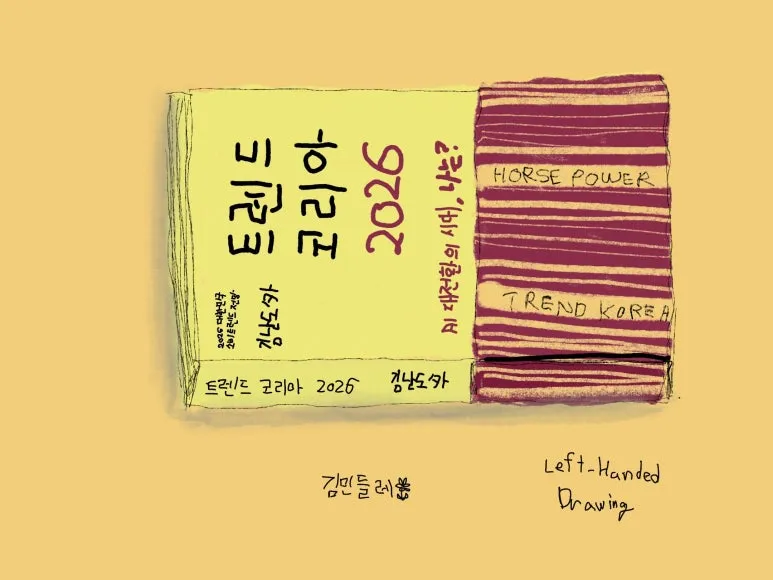 트렌드
코리아
2026
AI 대전환의 시대, 나는?
2026 대한민국
소비트렌드 전망
김난도 外
HORSE POWER
TREND KOREA
트렌드 코리아 2026 김난도 外
김민들레
Left-Handed
Drawing